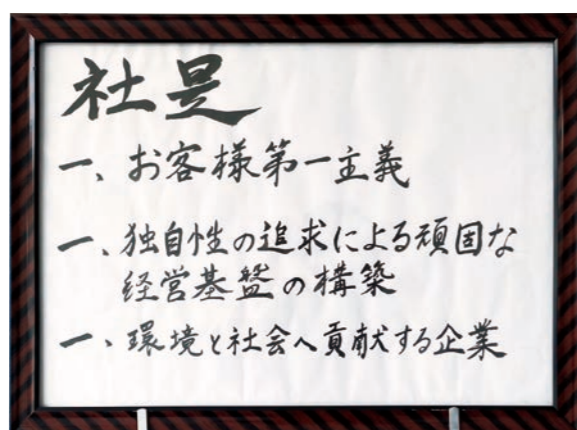 社是
一、お客様第一主義
一、独自性の追求による頑固な
経営基盤の構築
一、環境と社会へ貢献する企業